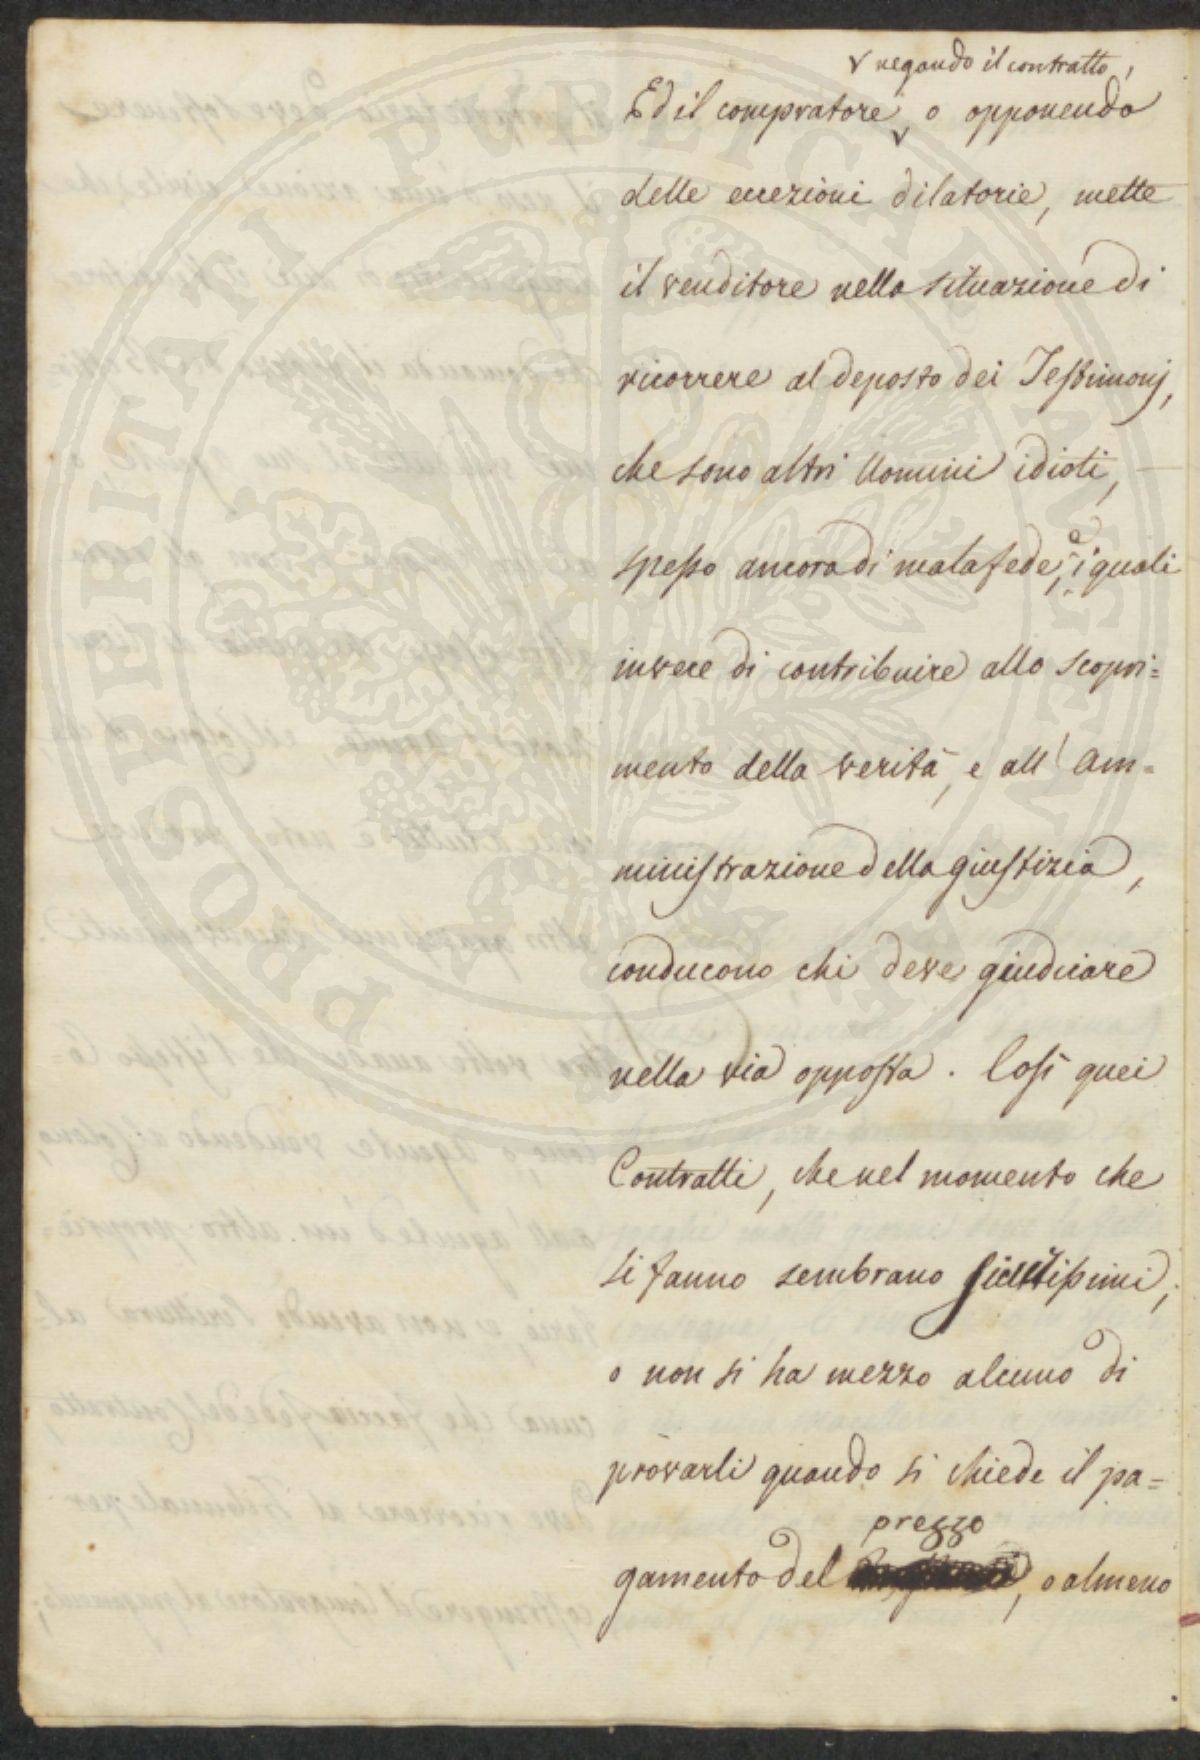 PROSPERITATI PUBLICAE AUGENDAE
negando il contratto,
Ed il compratore, o opponendo
delle eccezioni dilatorie, mette
il venditore nella situazione di
ricorrere al deposto dei Testimonj,
che sono altri Uomini idioti,
spesso ancora di mala fede, i quali
invece di contribuire allo scopri=
mento della verità, e all' Am=
ministrazione della giustizia,
conducono chi deve giudicare
nella via opposta. Così quei
Contratti, che nel momento che
si fanno sembrano
o non si ha mezzo alcuno di
provarli quando si chiede il pa=
prezzo
gamento del , o almeno